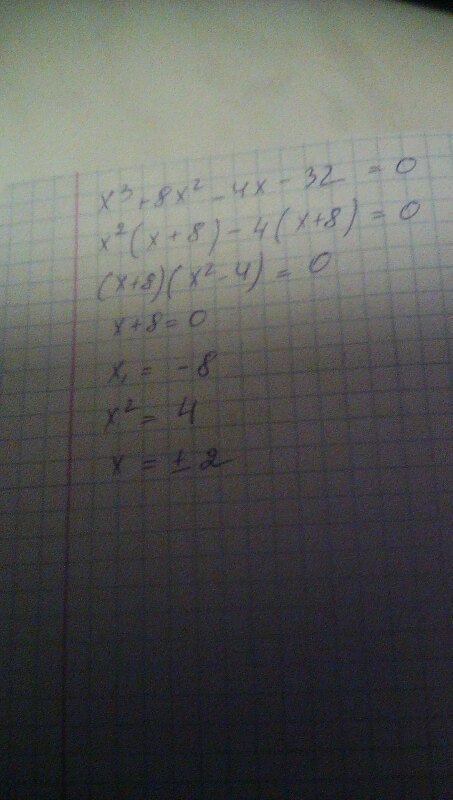 x³ + 8x² - 4x - 32 = 0
x²(x + 8) - 4(x+8) = 0
(x+8)(x² - 4) = 0
x+8 = 0
x₁ = -8
x² = 4
x = ±2